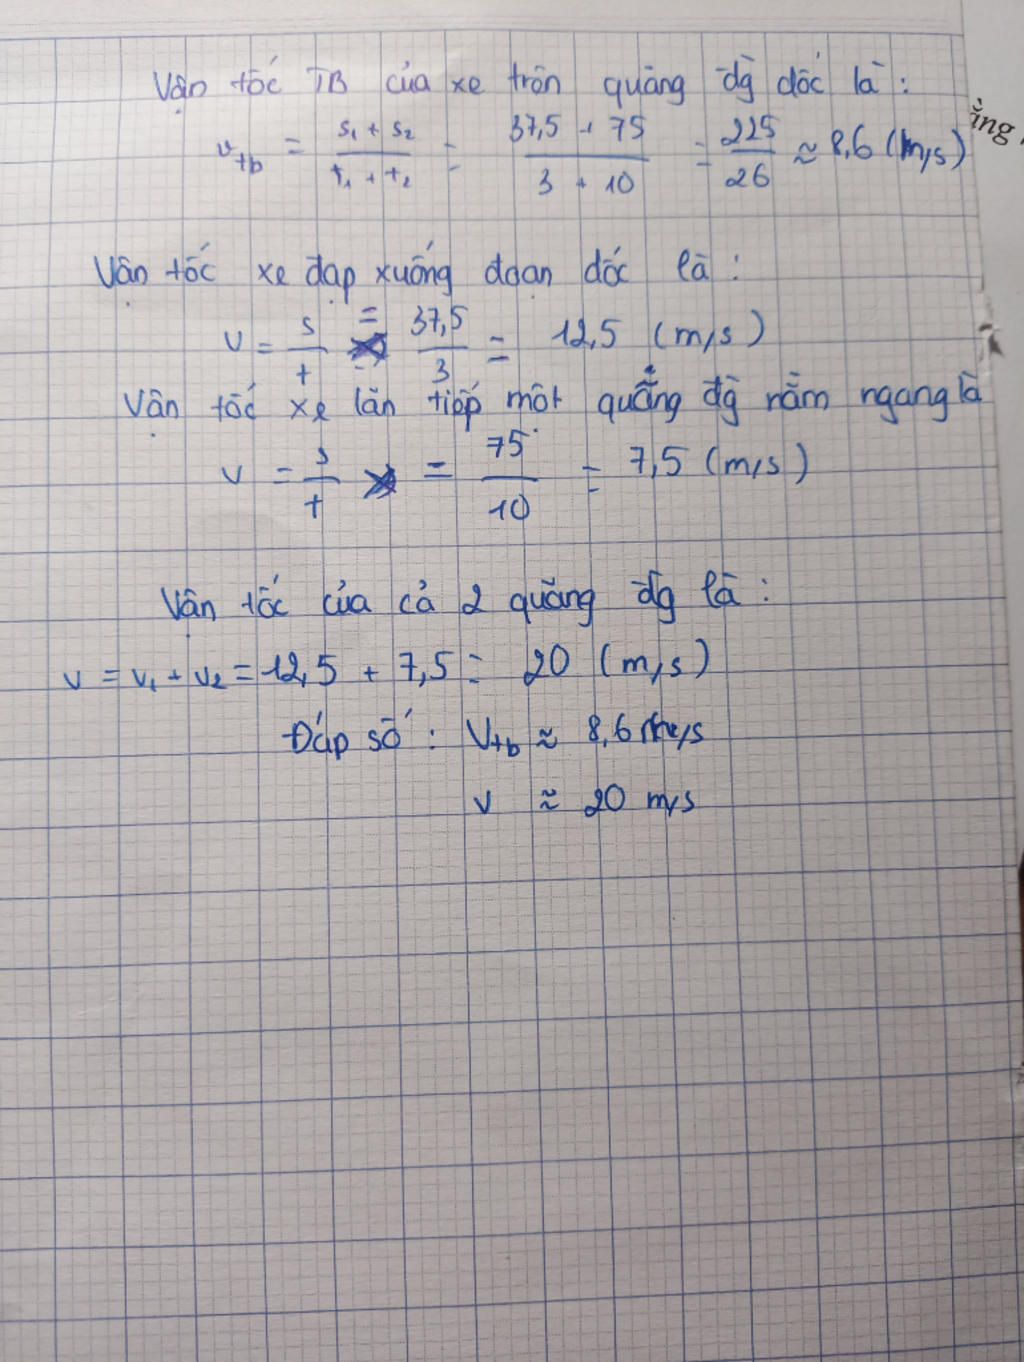 Vận tốc TB của xe trên quãng đg dốc là:
ẳng
v_tb = (s₁ + s₂)/(t₁ + t₂) = (37,5 + 75)/(3 + 10) = 225/26 ≈ 8,6 (m/s)
Vận tốc xe đạp xuống đoạn dốc là:
v = s/t = 37,5/3 = 12,5 (m/s)
Vận tốc xe lăn tiếp một quãng đg nằm ngang là
v = s/t = 75/10 = 7,5 (m/s)
Vận tốc của cả 2 quãng đg là:
v = v₁ + v₂ = 12,5 + 7,5 = 20 (m/s)
Đáp số: V_tb ≈ 8,6 m/s
v ≈ 20 m/s